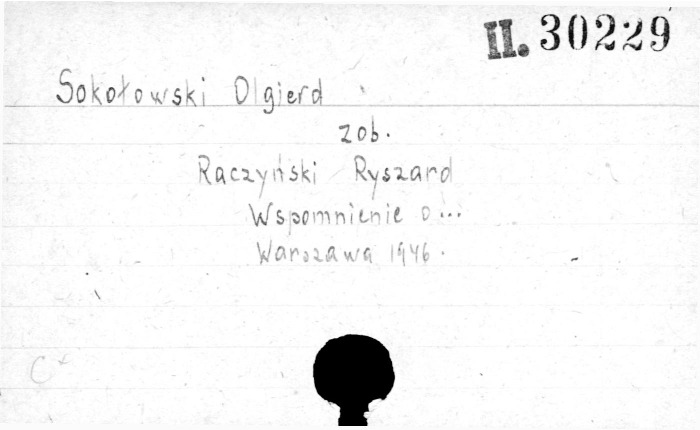 II. 30229
Sokołowski Olgierd
zob.
Raczyński Ryszard
Wspomnienie o...
Warszawa 1946.
C